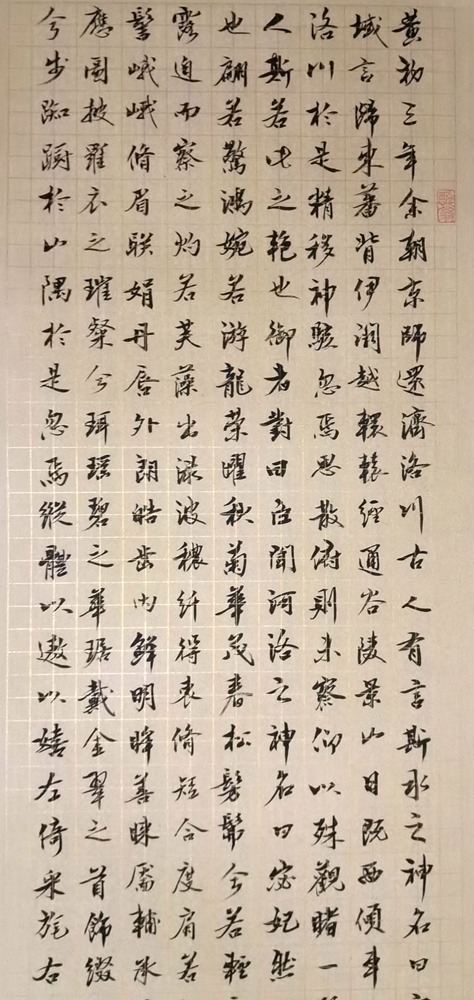 黄初三年余朝京師還濟洛川古人有言斯水之神名曰
域言歸東蕃背伊闕越轘轅經通谷陵景山日既西傾車
洛川於是精移神駭忽焉思散俯則未察仰以殊觀睹一
人斯若此之艳也御者對曰臣聞河洛之神名曰宓妃然
也翩若驚鴻婉若游龍榮曜秋菊華茂春松髣髴兮若輕
露迫而察之灼若芙蕖出淥波穠纤得衷脩短合度肩若
髻峨峨脩眉联娟丹唇外朗皓齿内鲜明眸善睐靨輔承
應圖披羅衣之璀粲兮珥瑶碧之華琚戴金翠之首飾綴
兮步踟蹰於山隅於是忽焉縱體以遨以嬉左倚采旄右